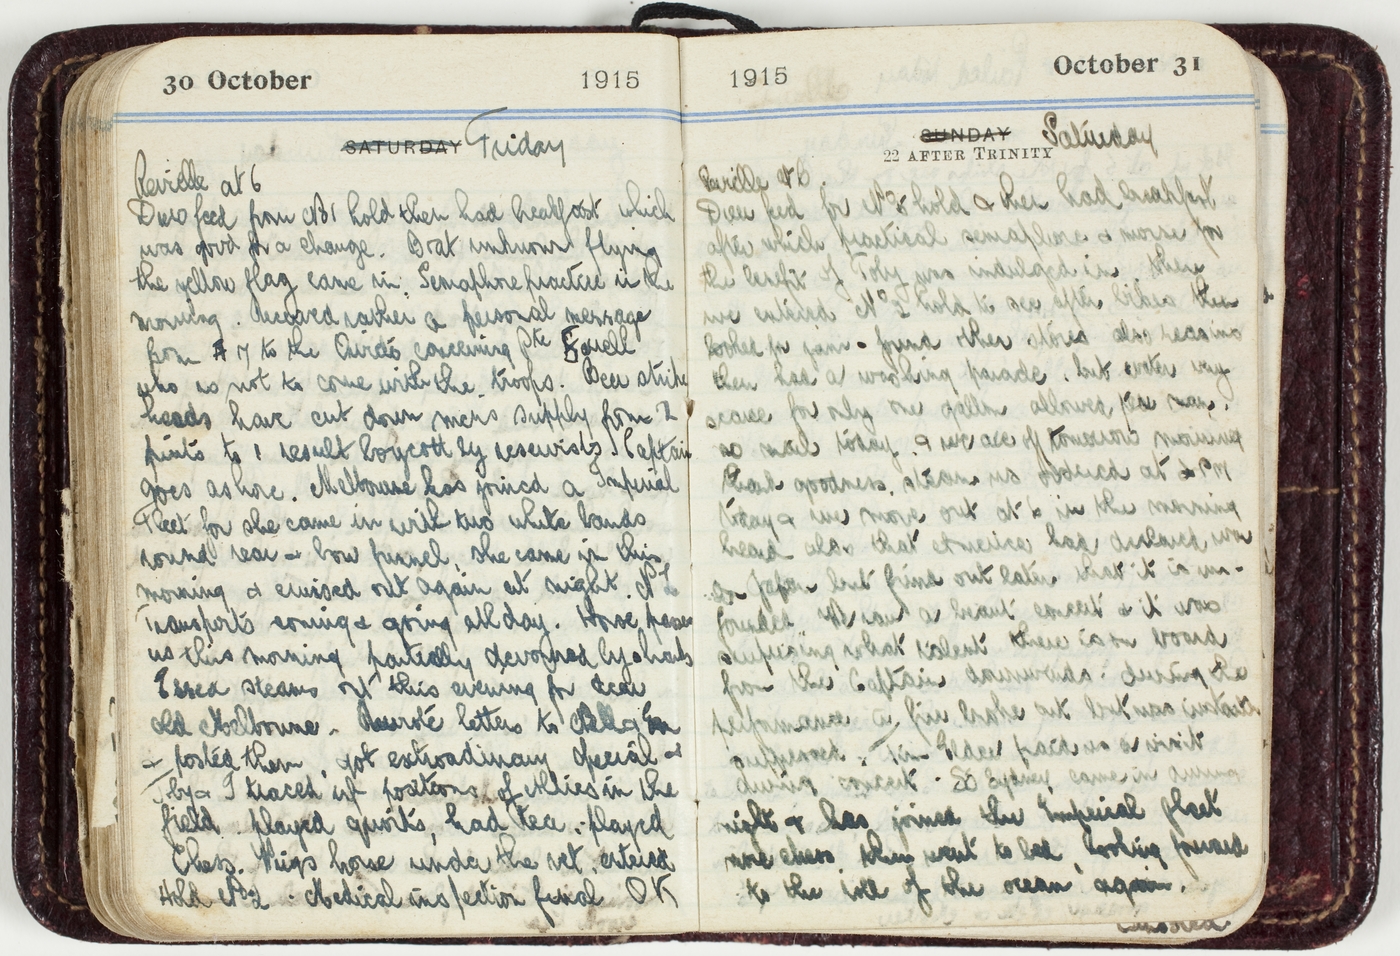 30 October 1915
SATURDAY Friday
Reveille at 6
Drew feed from No 1 hold then had breakfast which
was good for a change. Boat unknown flying
the yellow flag came in. Semaphore practice in the
morning. Received rather a personal message
from A 7 to the Orvieto concerning Pte
who is not to come with the troops. Beer strike
heads have cut down mens supply from 2
pints to 1 result boycott by reservists. Captain
goes ashore. Melbourne has joined a Imperial
Fleet for she came in with two white bands
round rear & bow funnel, she came in this
morning & cruised out again at night. N Z
Transports coming & going all day. Horse passes
us this morning partially devoured by sharks
steams off this evening for dear
old Melbourne. Rewrote letters to
& posted them, got extraordinary special &
Toby & I traced up positions of Allies in the
field played quoits, had Tea, played
Chess. horse under the vet. entered
Hold No 2. Medical inspection final OK
1915 October 31
SUNDAY Saturday
22 AFTER TRINITY
Reveille at 6.
Drew feed for No 3 hold & then had breakfast
after which practical semaphore & morse for
the benefit of Toby was indulged in then
we entered No 2 hold to see after then
looked for jam & found other stores also
then had a washing parade, but water very
scarce for only one gallon allowed per man.
no mail today & we are off tomorrow morning
thank goodness, steam us at PM
today & we move out at in the morning
heard also that America had declared war
on but find out later that it is un-
founded. We ran a concert & it was
surprising what talent there is on board
from the Captain downwards: during the
performance a fire broke out but was
. paid us a visit
during concert. SS Sydney came in during
night & has joined the Imperial fleet
more chess then went to bed, looking forward
to the roll of the ocean again.